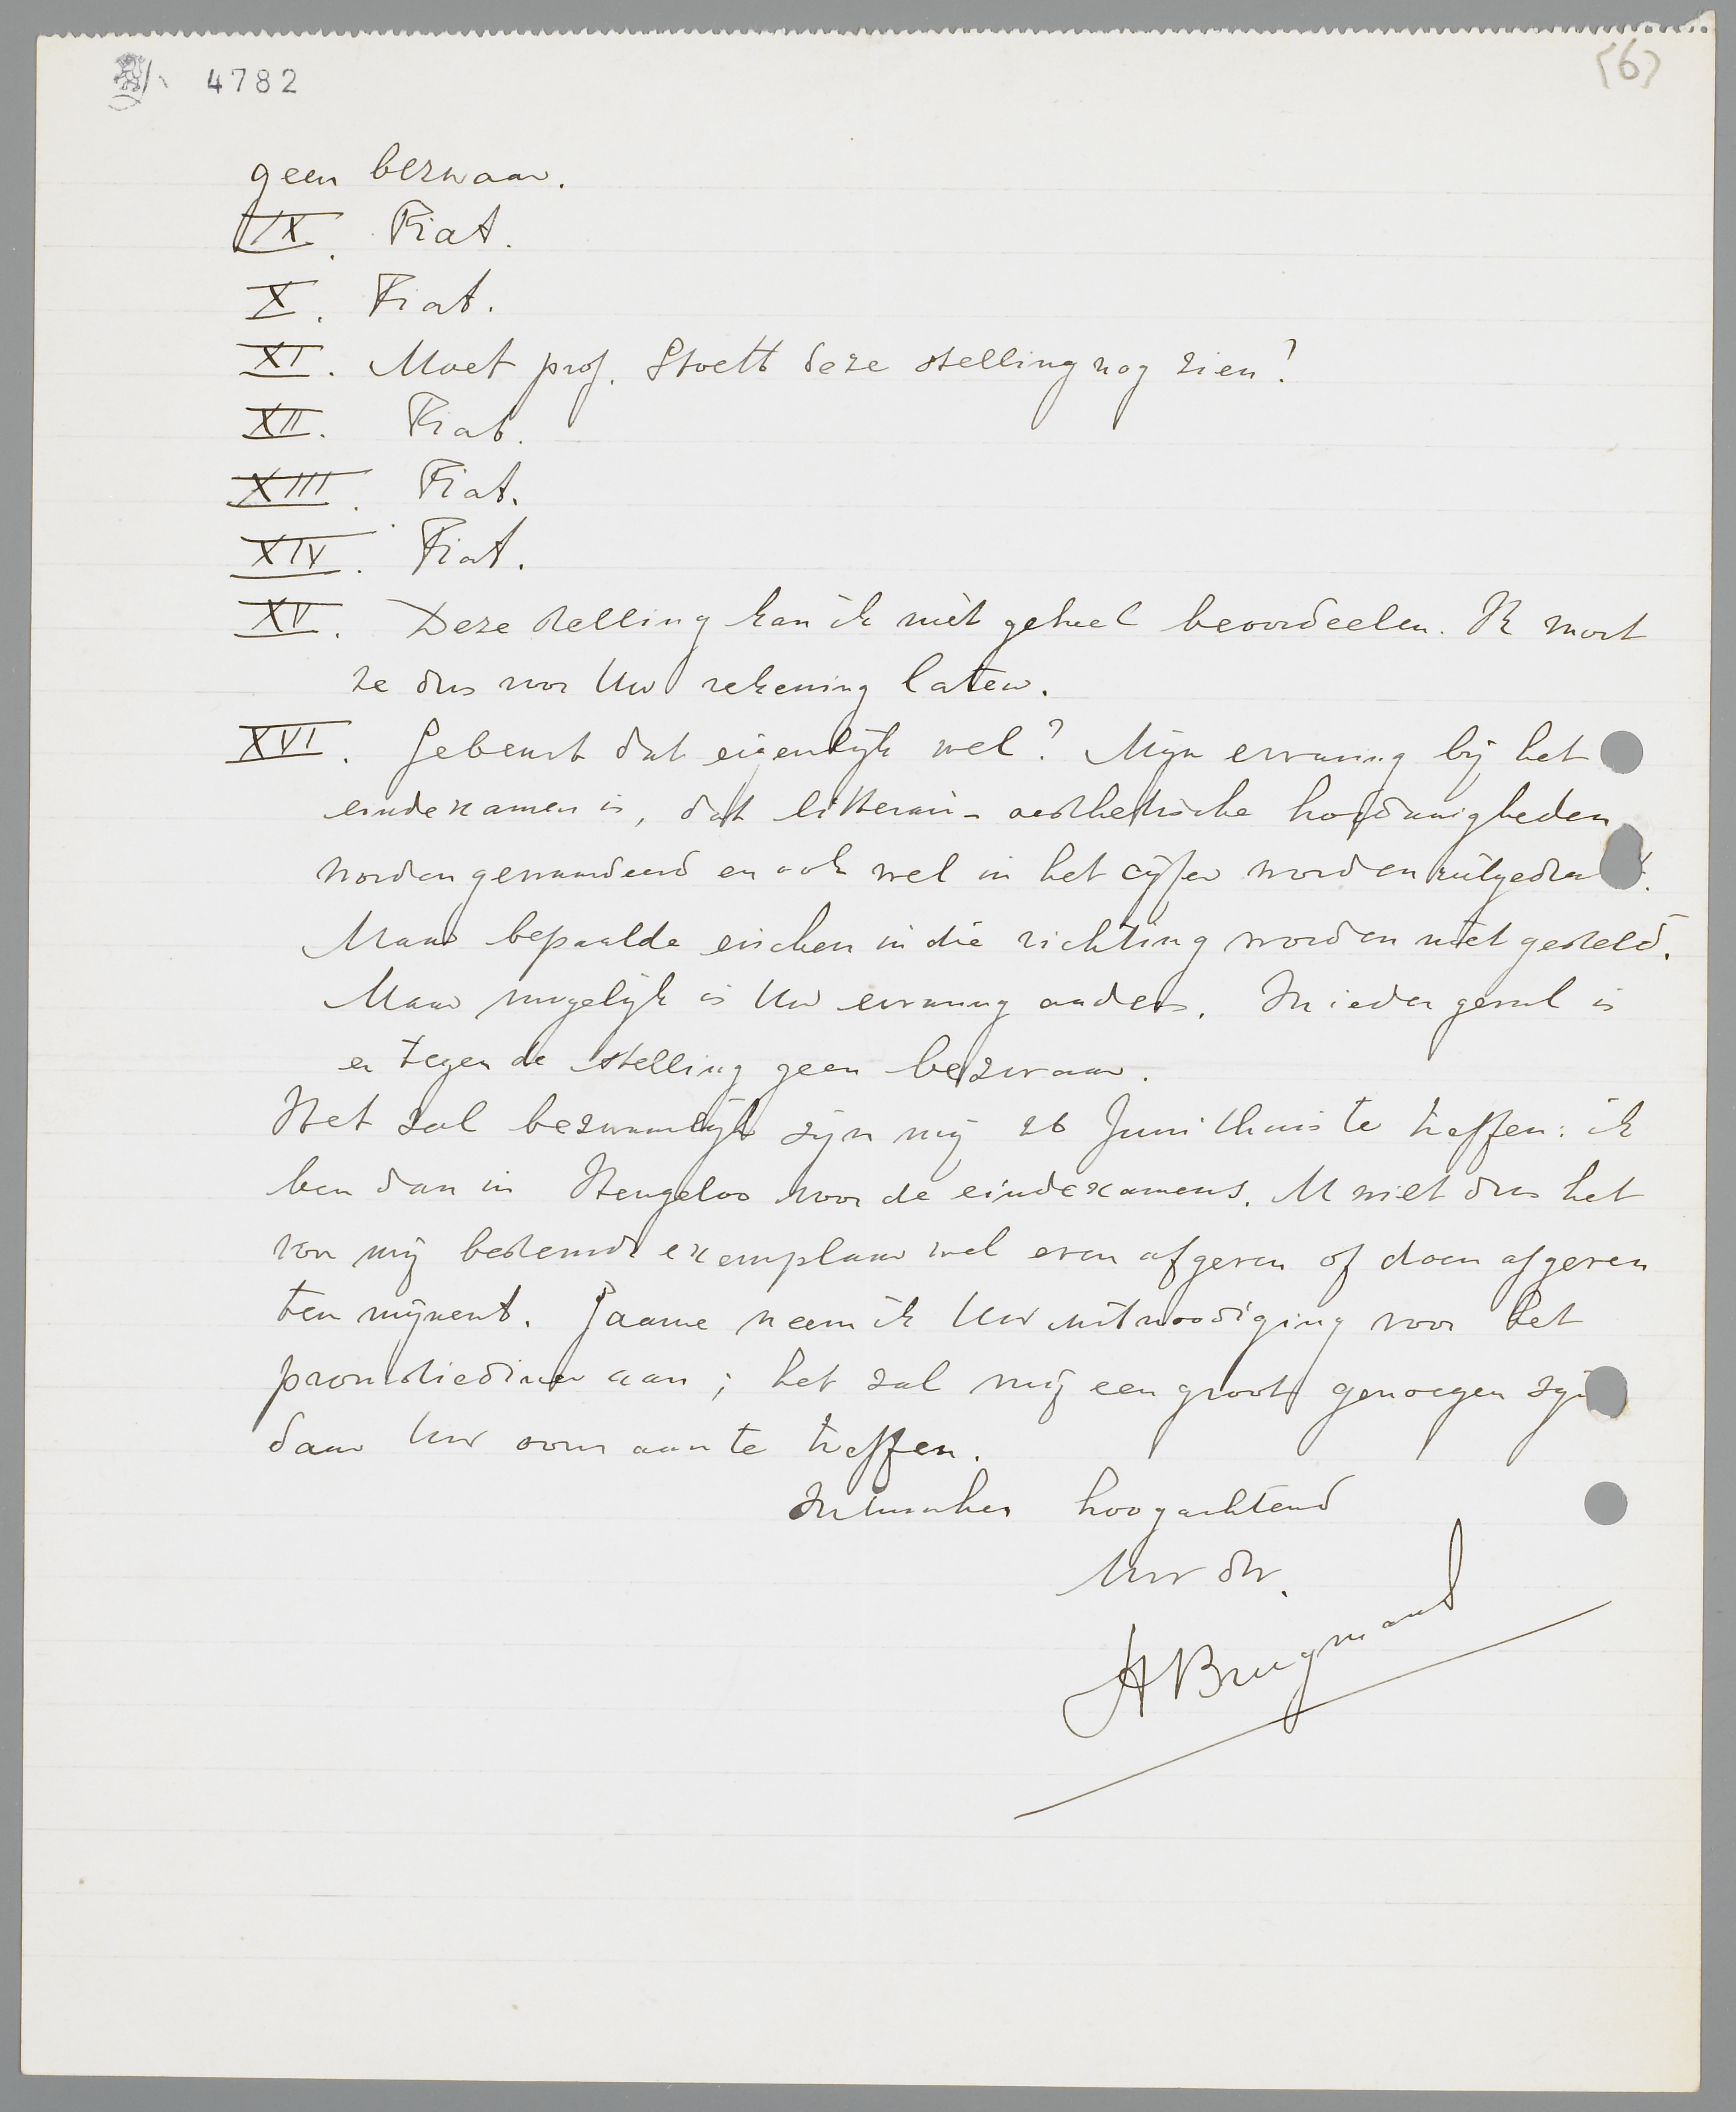 4782
(6)
geen bezwaar.
IX. Fiat.
X. Fiat.
XI. Moet prof. Stoett deze stelling nog zien?
XII. Fiat.
XIII. Fiat.
XIV. Fiat.
XV. Deze stelling kan ik niet geheel beoordeelen. Ik moet
ze dus voor Uw rekening laten.
XVI. Gebeurt dat eigenlijk wel? Mijn ervaring bij het
eindexamen is, dat litterair-aesthetische hoedanigheden
worden gewaardeerd en ook wel in het cijfer worden uitgedrukt.
Maar bepaalde eischen in die richting worden niet gesteld.
Maar mogelijk is Uw ervaring anders. In ieder geval is
er tegen de stelling geen bezwaar.
Het zal bezwaarlijk zijn mij 26 Juni thuis te treffen: ik
ben dan in Hengeloo voor de eindexamens. U wilt dus het
voor mij bestemde exemplaar wel even afgeven of doen afgeven
ten mijnent. Gaarne neem ik Uw uitnoodiging voor het
promotiediner aan; het zal mij een groot genoegen zijn
daar Uw oom aan te treffen.
Intusschen hoogachtend
Uw dw.
HBrugmans